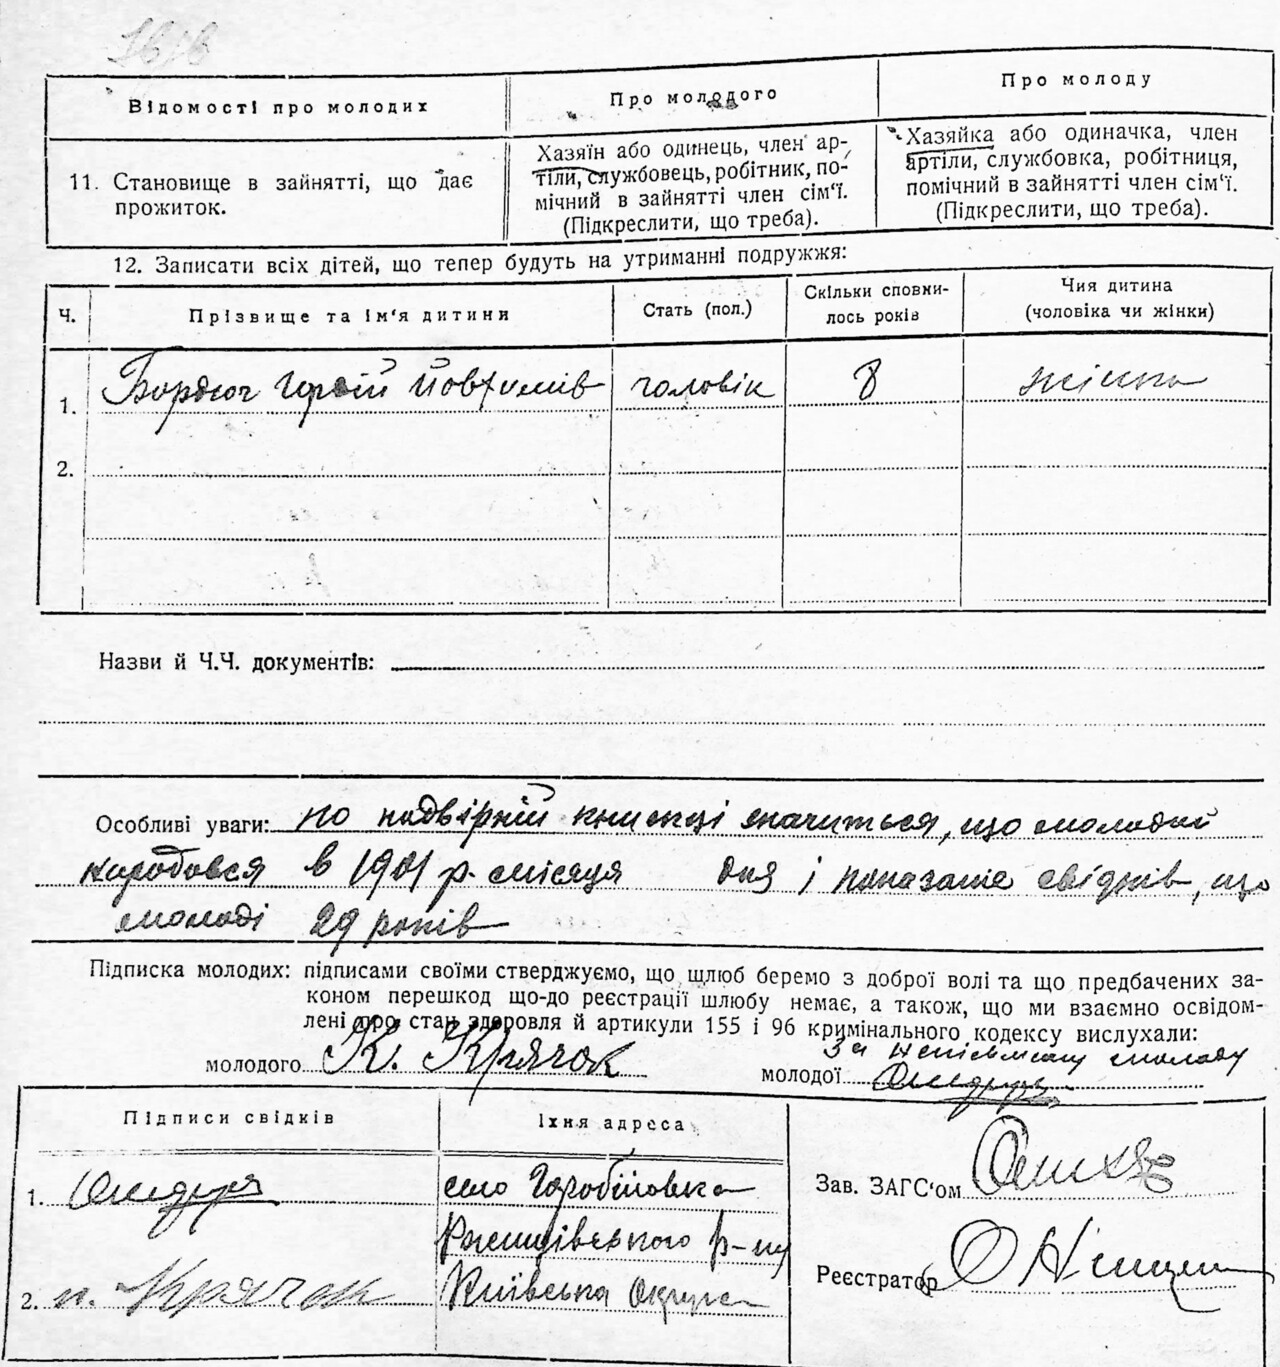 Відомості про молодих
Про молодого
Про молоду
11. Становище в зайнятті, що дає прожиток.
Хазяїн або одинець, член ар-
тіли, службовець, робітник, по-
мічний в зайнятті член сім'ї.
(Підкреслити, що треба).
Хазяйка або одиначка, член
артіли, службовка, робітниця,
помічний в зайнятті член сім'ї.
(Підкреслити, що треба).
12. Записати всіх дітей, що тепер будуть на утриманні подружжя:
Ч.
Прізвище та ім'я дитини
Стать (пол.)
Скільки сповни-
лось років
Чия дитина
(чоловіка чи жінки)
1. Бордюг Гордій Йовхимів чоловік 8 жінки
2.
Назви й Ч.Ч. документів:
Особливі уваги: по надвірній книжці значиться, що молодий
народився в 1901 р. місяця дня і показание свідків, що
молоді 29 років
Підписка молодих: підписами своїми стверджуємо, що шлюб беремо з доброї волі та що предбачених за-
коном перешкод що-до реєстрації шлюбу немає, а також, що ми взаємно освідом-
лені про стан здоровля й артикули 155 і 96 кримінального кодексу вислухали:
молодого К. Крячок
За неписьменну молоду
молодої
Підписи свідків
Їхня адреса
1.
село Горобіївка
Ржищівського р-ну
2. п. Крячок
Київська Округа
Зав. ЗАГС'ом
Реєстратор